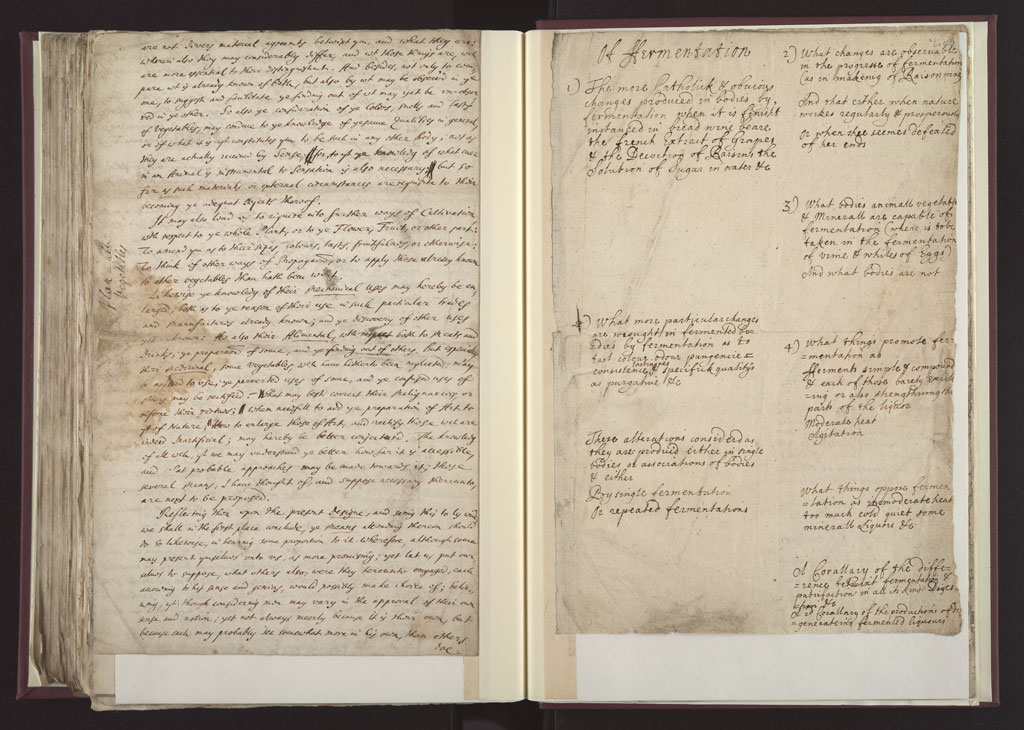 are not divers material agreants betwixt you, and what they are;
wherein also they may considerably differ, and wt those things are, wch
are more essential to their distinguishmt. And besides, not only to com=
pare wt is already known of both, but also by wt may be observed in ye
one, to suggest and facilitate ye finding out of wt may yet be un-obser
ved in ye other. So also ye consideration of ye Colors, smells, and tasts
of Vegetables, may conduce to ye knowledge of Qualities in general
or of what it is yt constitutes ym to be such in any other body; not as
they are actually received by Sense, for, to yt ye knowledg of what ever
in an Animal is instrumental to Sensation is also necessary, but so
far as such materials or external circumstances are requisite to their
becoming ye adequat objects thereof.
It may also lead us to inquire into further ways of Cultivation
with respect to ye whole Plant, or to ye Flower, Fruit, or other part:
To amend ym as to their sizes, colours, tasts, fruitfulness, or otherwise:
To think of other ways of Propagaon; or to apply those already known
to other vegetables than hath been wont.
Likewise ye knowledg of their Mechanical uses may hereby be en
larged; both as to ye reason of their use in such particular Trades
and Manufactures already known; and ye discovery of other uses
yet unknown: As also their Alimental, with respect both to meats and
drinks; ye preparation of some, and ye finding out of others. But especially
their medicinal; some vegetables wch have hitherto been neglected, may
be applied to use; ye perverted uses of some, and ye confused uses of
others may be rectified: What may best correct their malignancies or
inforce their virtues; When needfull to add ye preparation of Art to
yt of Nature; How to enlarge those of Art, and rectify those wch are
indeed Inartificial; may hereby be better conjectured. The knowledg
of all wch, yt we may understand ye better how far it is accessible,
and that probable approaches may be made towards it; these
several means, I have thought of, and suppose necessary thereunto,
are next to be proposed.
Reflecting then upon the present designe, and seeing this to lie with
we shall in the first place conclude, ye means attending thereon should
do so likewise, in bearing some proportion to it. Wherefore, although some
may present ymselves unto us, as more promising; yet let us put our
selves to suppose, what others also, were they hereunto engaged, each
according to his sense and genius, would possibly make choice of; belie
ving, yt though considering men may vary in the approval of their own
sense and notion; yet not always meerly because it is their own, but
because each may probably see somewhat more in his own, than others
doe.
Plan
Vegetables
Of Fermentation
1) The more Catholick & obvious
changes produced in bodies by
fermentation when it is finisht
instanced in bread wine beare
the french Extract of Grapes
& the Decoction of Raisins the
Solution of Sugar in water &c
What more particular changes
are wrought in fermented bo=
dies by fermentation as to
tast colour odour pungencie
consistency & specifick qualitys
as purgative &c
These alterations considered as
they are produced either in single
bodies or associations of bodies
& either
By single fermentation
Or repeated fermentations
2) What changes are observable
in the progress of fermentation
(as in making of Raison wine
And that either when nature
workes regularly & prosperously
Or when she seemes defeated
of her ends
3) What bodies animall vegetable
& Minerall are capable of
fermentation (where is to be
taken in the fermentation
of urine & whites of Eggs)
And what bodies are not
4) What things promote fer=
=mentation as
Ferments simple & compound
& each of those barely
=ing or also strengthning the
parts of the liquor
Moderate heat
Agitation
What things oppose fermen
=tation as immoderate heat
too much cold quiet some
minerall Liquors &c
A Corallary of the diffe=
=rence betwixt fermentation &
putrifaction in all its kinds
&c
A 2d Corallary of the productions of de
=generateing fermented liquours